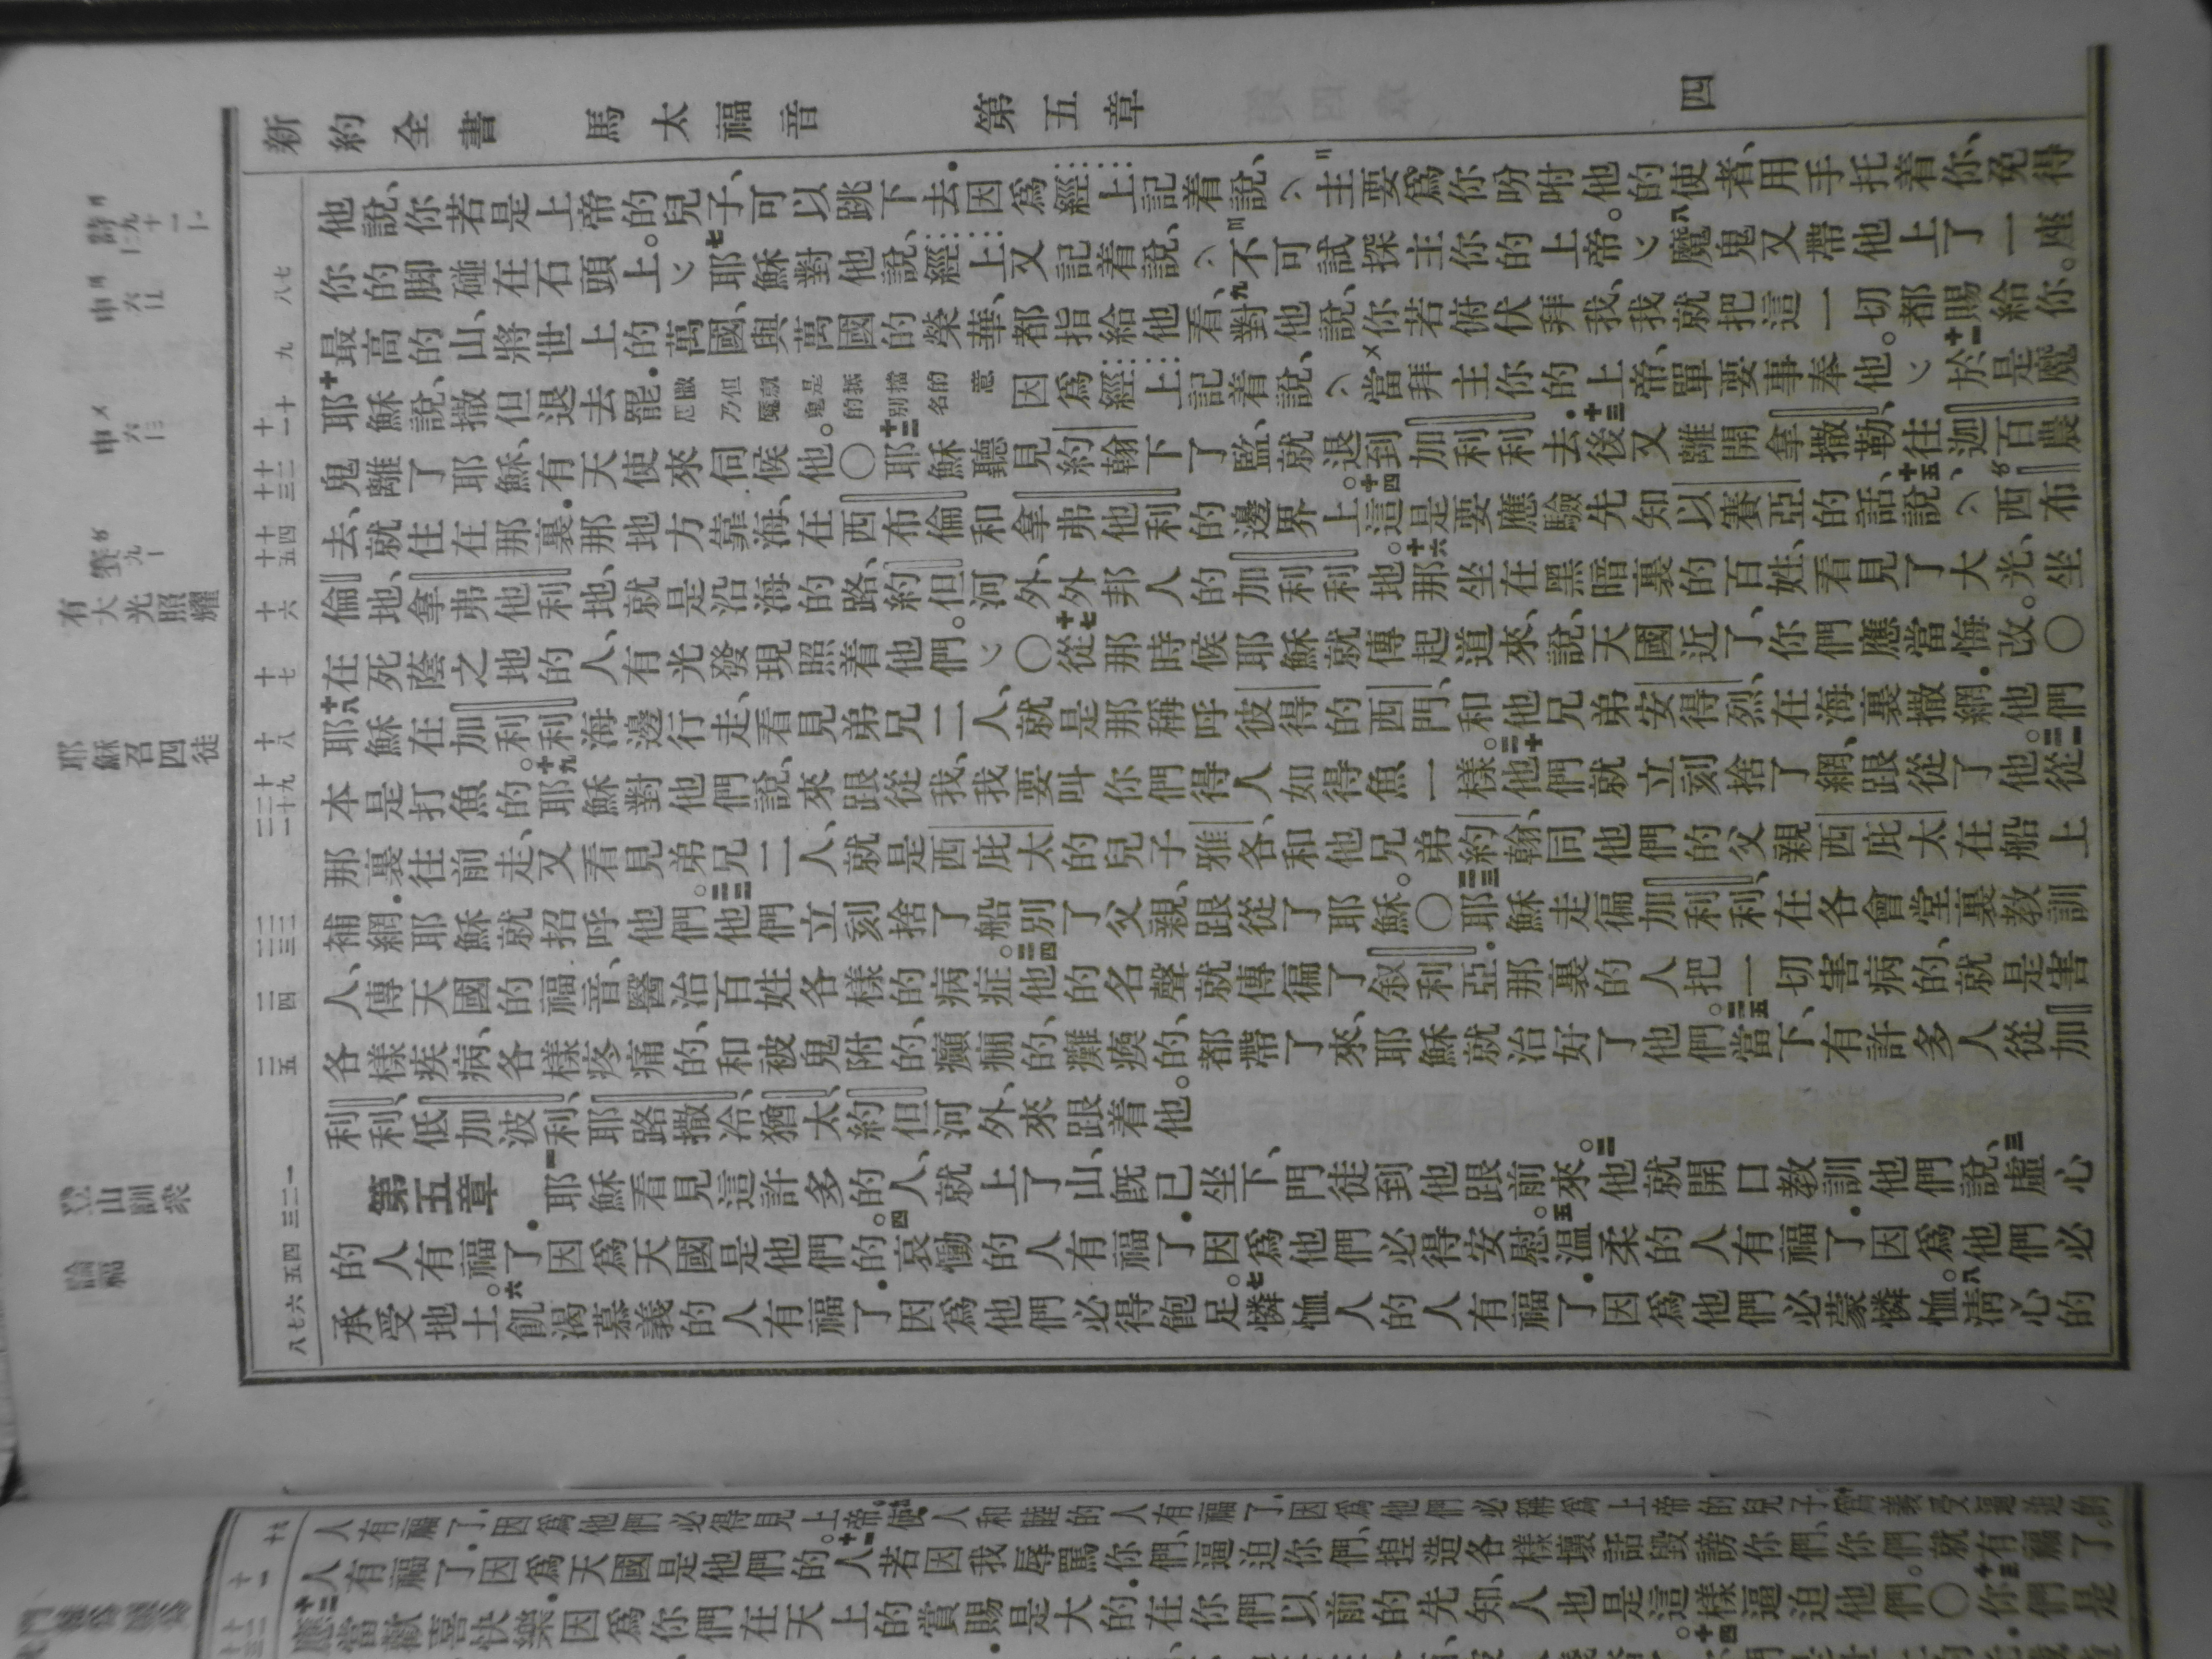 新約全書 馬太福音 第五章 四
他說、你若是上帝的兒子、可以跳下去．因爲經上記着說、主要爲你吩咐他的使者、用手托着你、免得
你的脚碰在石頭上。七耶穌對他說、經上又記着說、不可試探主你的上帝。八魔鬼又帶他上了一座
最高的山、將世上的萬國、與萬國的榮華、都指給他看、九對他說、你若俯伏拜我、我就把這一切都賜給你。
十耶穌說、撒但退去罷．因爲經上記着說、當拜主你的上帝、單要事奉他。十一於是魔
鬼離了耶穌、有天使來伺候他。〇十二耶穌聽見約翰下了監、就退到加利利去．十三後又離開拿撒勒、往迦百農
去、就住在那裏．那地方靠海、在西布倫和拿弗他利的邊界上。十四這是要應驗先知以賽亞的話、說、十五西布
倫地、拿弗他利地、就是沿海的路、約但河外、外邦人的加利利地。十六那坐在黑暗裏的百姓、看見了大光、坐
在死蔭之地的人、有光發現照着他們。〇十七從那時候耶穌就傳起道來、說、天國近了、你們應當悔改。〇
十八耶穌在加利利海邊行走、看見弟兄二人、就是那稱呼彼得的西門、和他兄弟安得烈、在海裏撒網．他們
本是打魚的。十九耶穌對他們說、來跟從我、我要叫你們得人如得魚一樣。二十他們就立刻捨了網、跟從了他。二一從
那裏往前走、又看見弟兄二人、就是西庇太的兒子雅各、和他兄弟約翰、同他們的父親西庇太在船上
補網．耶穌就招呼他們。二二他們立刻捨了船、別了父親、跟從了耶穌。〇二三耶穌走徧加利利、在各會堂裏教訓
人、傳天國的福音、醫治百姓各樣的病症。二四他的名聲就傳徧了叙利亞．那裏的人把一切害病的、就是害
各樣疾病、各樣疼痛的、和被鬼附的、癲癎的、癱瘓的、都帶了來、耶穌就治好了他們。二五當下、有許多人從加
利利、低加波利、耶路撒冷、猶太、約但河外、來跟着他。
第五章 一耶穌看見這許多的人、就上了山、既已坐下、門徒到他跟前來。二他就開口教訓他們說、三虛心
的人有福了．因爲天國是他們的。四哀慟的人有福了．因爲他們必得安慰。五温柔的人有福了．因爲他們必
承受地土。六飢渴慕義的人有福了．因爲他們必得飽足。七憐恤人的人有福了．因爲他們必蒙憐恤。八清心的
有大光照耀
耶穌召四徒
登山訓衆
論福
人有福了．因爲他們必得見上帝。九使人和睦的人有福了．因爲他們必稱爲上帝的兒子。十爲義受逼迫的
人有福了．因爲天國是他們的。十一人若因我辱罵你們、逼迫你們、揑造各樣壞話毀謗你們、你們就有福了。
十二應當歡喜快樂．因爲你們在天上的賞賜是大的．在你們以前的先知、人也是這樣逼迫他們。〇十三你們是